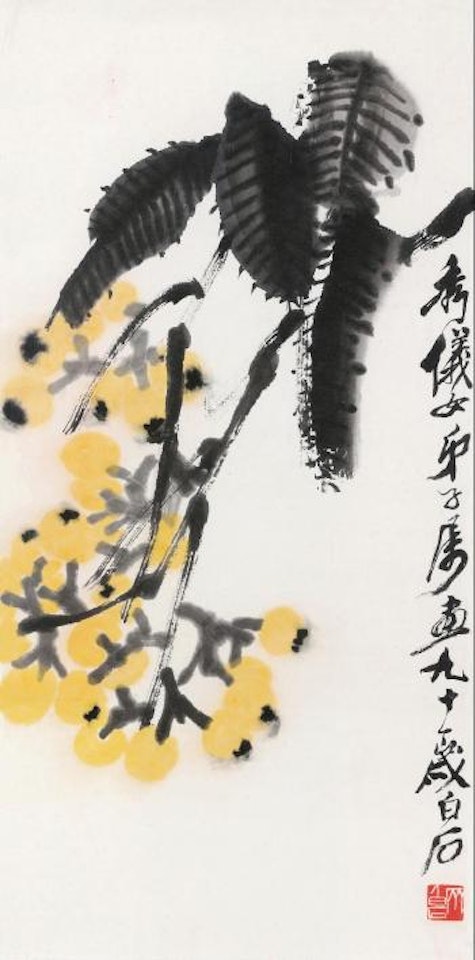 秀儀女弟子屬畫九十歲白石